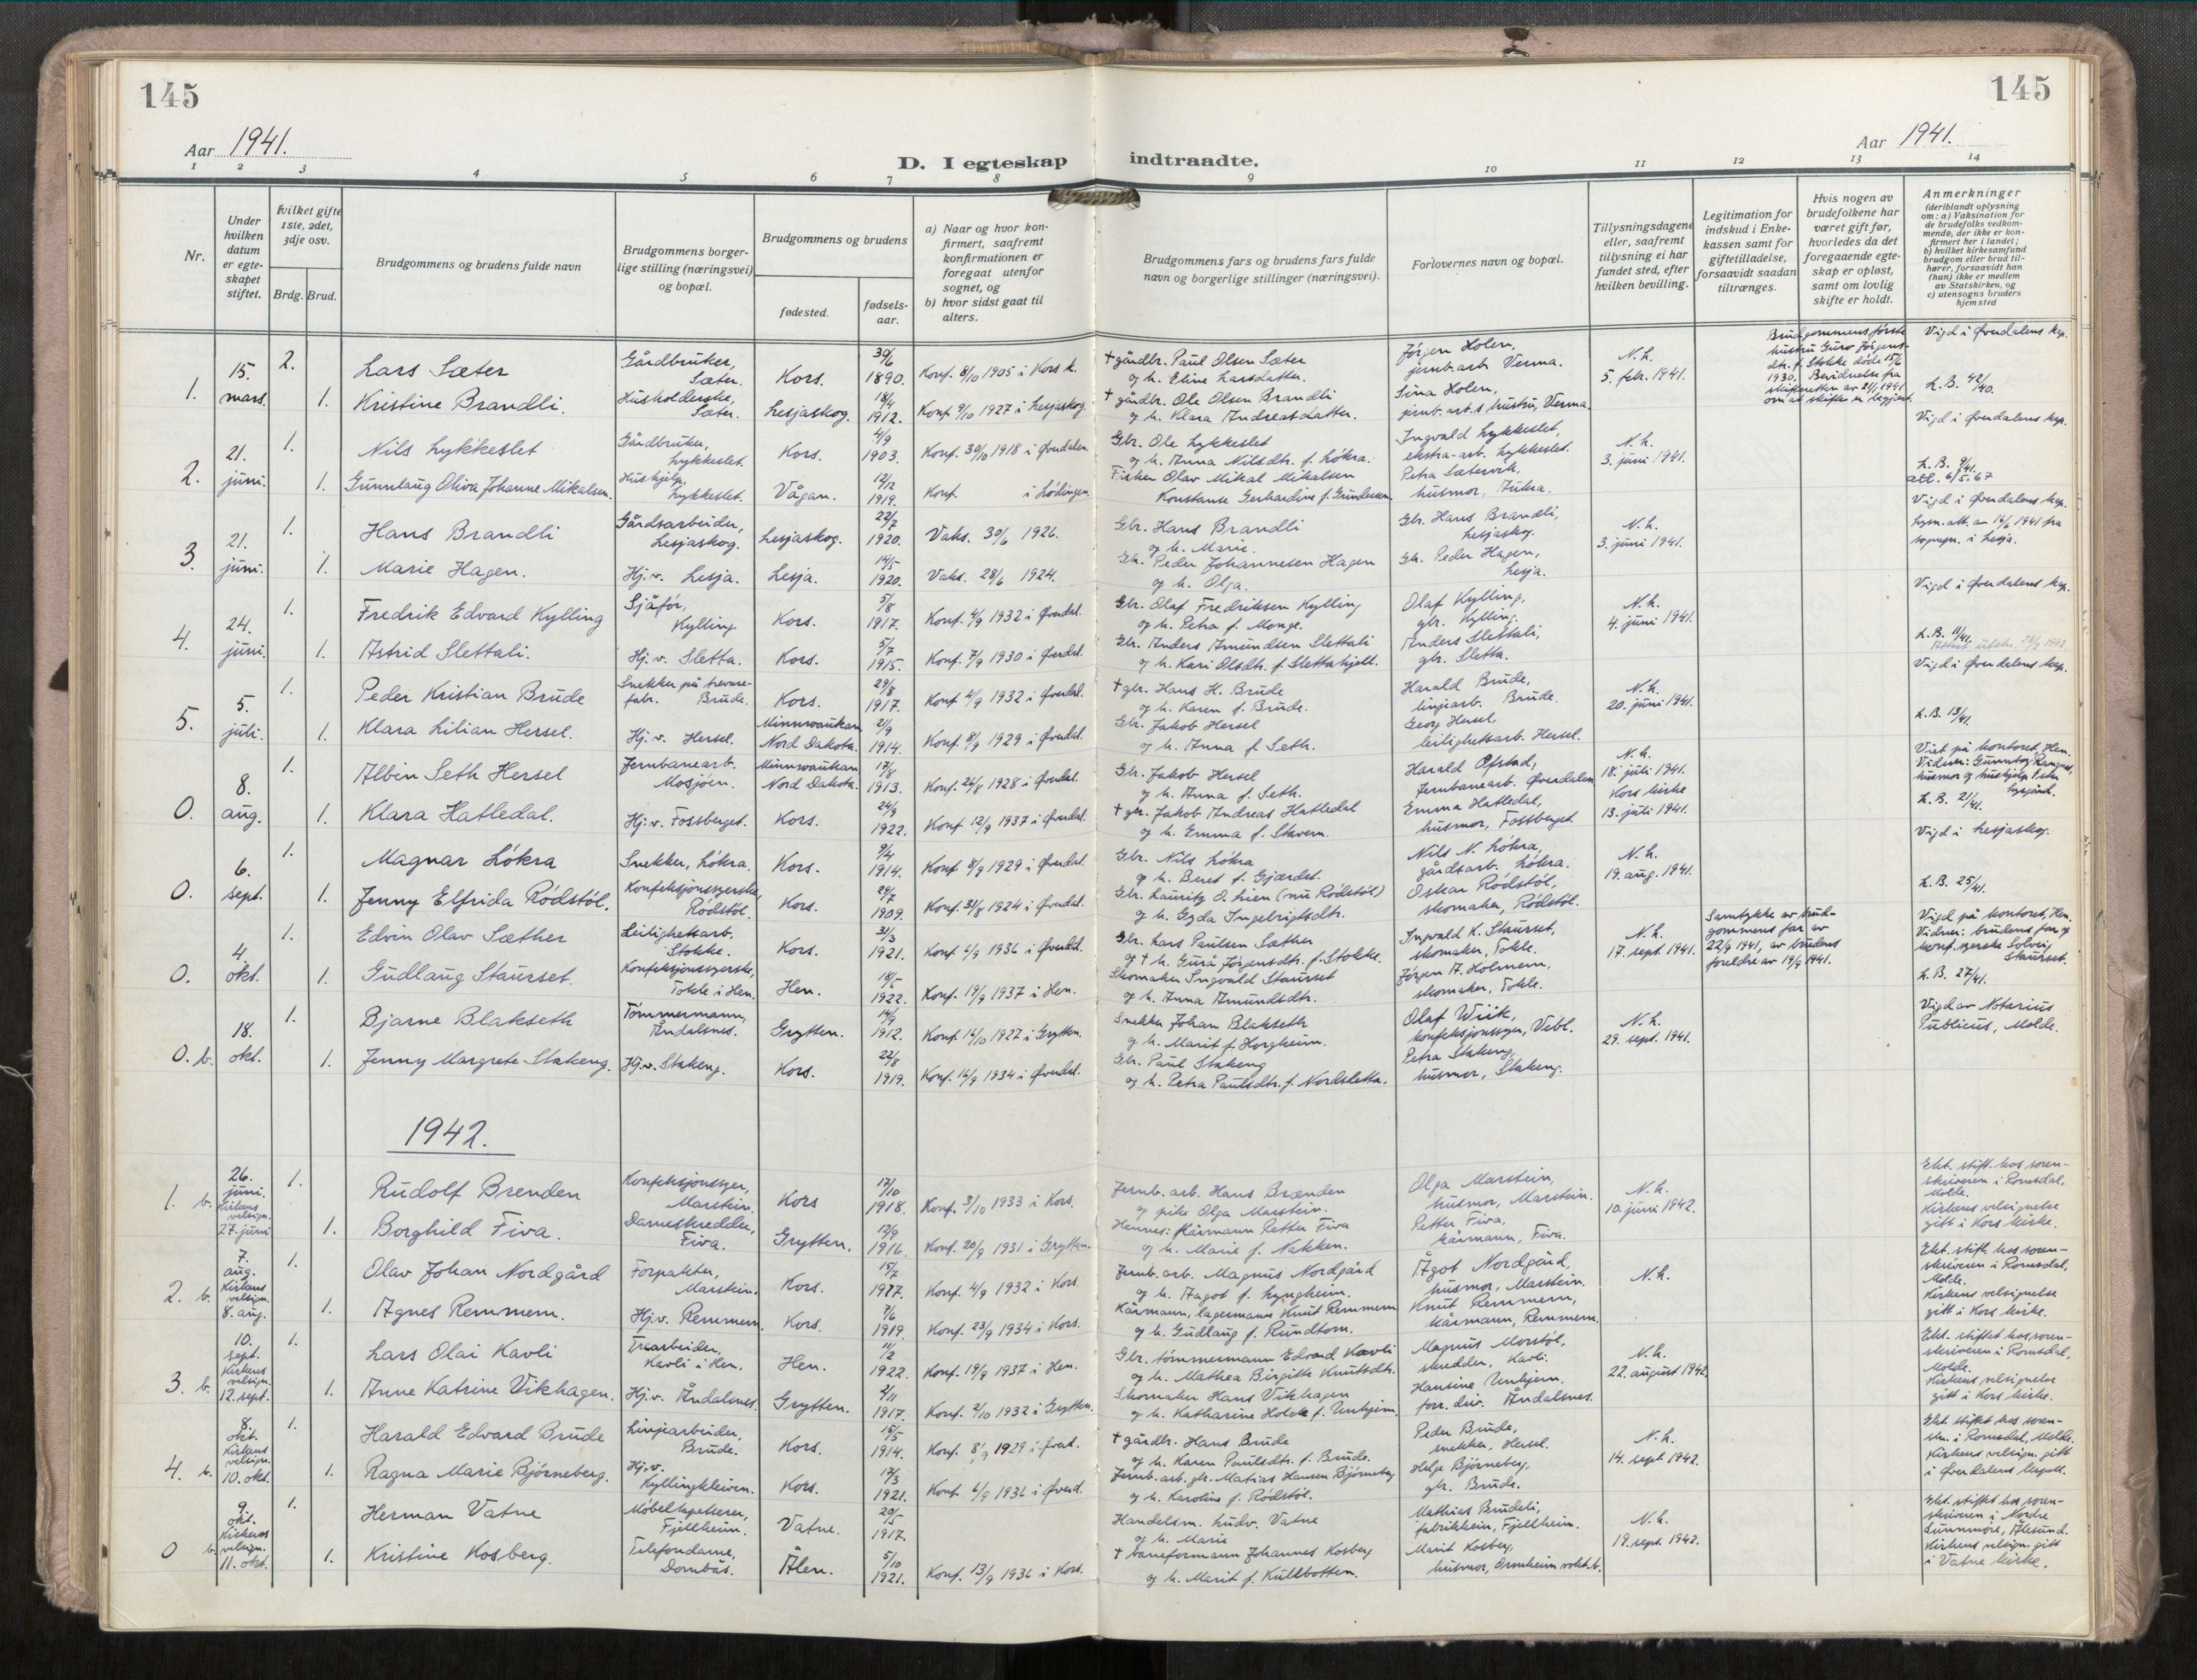 145
145
Aar 1941.
Aar 1941.
D. I egteskap indtraadte.
1 2 3 4 5 6 7 8 9 10 11 12 13 14
Nr.
Under hvilken datum er egteskapet stiftet.
hvilket gifte 1ste, 2det, 3dje osv.
Brdg. Brud.
Brudgommens og brudens fulde navn
Brudgommens borgerlige stilling (næringsvei) og bopæl.
Brudgommens og brudens
fødested.
fødselsaar.
a) Naar og hvor konfirmert, saafremt konfirmationen er foregaat utenfor sognet, og
b) hvor sidst gaat til alters.
Brudgommens fars og brudens fars fulde navn og borgerlige stillinger (næringsvei).
Forlovernes navn og bopæl.
Tillysningsdagene eller, saafremt tillysning ei har fundet sted, efter hvilken bevilling.
Legitimation for indskud i Enkekassen samt for giftetilladelse, forsaavidt saadan tiltrænges.
Hvis nogen av brudefolkene har været gift før, hvorledes da det foregaaende egteskap er opløst, samt om lovlig skifte er holdt.
Anmerkninger
(deriblandt oplysning om: a) Vaksination for de brudefolks vedkommende, der ikke er konfirmert her i landet; b) hvilket kirkesamfund brudgom eller brud tilhører, forsaavidt han (hun) ikke er medlem av Statskirken, og c) utensogns bruders hjemsted
1. 15. mars. 2. Lars Sæter Gårdbruker, Sæter. Kors. 30/6 1890. Konf. 8/10 1905 i Kors k. † gårdbr. Paul Olsen Sæter og h. Eline Larsdatter. Jørgen Holen, jernb.arb. Verma. N.k. 5. febr. 1941. Brudgommens første hustru Guro Jørgensdtr. f. Stokke døde 15/6 1930. Bevidnelse fra skifteretten av 21/1 1941 om at skifte er begjært. Vigd i Øverdalens kap.
1. Kristine Brandli. Husholderske, Sæter. Lesjaskog. 18/4 1912. Konf. 9/10 1927 i Lesjaskog. † gårdbr. Ole Olsen Brandli og h. Klara Andreasdatter. Sina Holen, jernb.arb.s hustru, Verma. L.B. 42/40.
2. 21. juni. 1. Nils Lykkeslet Gårdbruker, Lykkeslet. Kors. 4/9 1903. Konf. 30/10 1918 i Øverdalen. Gbr. Ole Lykkeslet og h. Anna Nilsdtr. f. Løkra. Ingvald Lykkeslet, ekstra-arb. Lykkeslet. N.k. 3. juni 1941. Vigd i Øverdalens kap.
1. Gunnlaug Oliva Johanne Mikalsen. Hushjelp, Lykkeslet. Vågan. 12/12 1919. Konf. i Lødingen. Fisker Olav Mikal Mikalsen Konstanse Gerhardine f. Gundersen. Petra Sætervik, husmor, Aukra. L.B. 9/41. att. 6/5.67
3. 21. juni. 1. Hans Brandli Gårdsarbeider, Lesjaskog. Lesjaskog. 22/7 1920. Vaks. 30/6 1926. Gbr. Hans Brandli og h. Marie. Gbr. Hans Brandli, Lesjaskog. N.k. 3. juni 1941. Vigd i Øverdalens kap. Lysn.att. av 16/6 1941 fra sognepr. i Lesja.
1. Marie Hagen. Hj.v. Lesja. Lesja. 14/5 1920. Vaks. 28/6 1924. Gbr. Peder Johannesen Hagen og h. Olga. Gbr. Peder Hagen, Lesja.
4. 24. juni. 1. Fredrik Edvard Kylling Sjåfør, Kylling. Kors. 5/8 1917. Konf. 4/9 1932 i Øverdal. Gbr. Olaf Fredriksen Kylling og h. Petra f. Monge. Olaf Kylling, gbr. Kylling. N.k. 4. juni 1941. Vigd i Øverdalens kap.
1. Astrid Slettali. Hj.v. Sletta. Kors. 5/7 1915. Konf. 7/9 1930 i Øverdal. Gbr. Anders Amundsen Slettali og h. Kari Olsdtr. f. Slettahjell. Anders Slettali, gbr. Sletta. L.B. 11/41.
5. 5. juli. 1. Peder Kristian Brude Snekker på trevarefabr. Brude. Kors. 29/8 1917. Konf. 4/9 1932 i Øverdal. † gbr. Hans H. Brude og h. Karen f. Brude. Harald Brude, linjearb. Brude. N.k. 20. juni 1941. Vigd i Øverdalens kap.
1. Klara Lilian Hersel. Hj.v. Hersel. Minnwaukan Nord Dakota. 21/9 1914. Konf. 8/9 1929 i Øverdal. Gbr. Jakob Hersel og h. Anna f. Seth. Georg Hersel, leilighetsarb. Hersel. L.B. 13/41.
0. 8. aug. 1. Albin Seth Hersel Jernbanearb. Mosjøen. Minnwaukan Nord Dakota. 17/8 1913. Konf. 26/8 1928 i Øverdal. Gbr. Jakob Hersel og h. Anna f. Seth. Harald Øfstad, Jernbanearb. Øverdalen N.k. 18. juli 1941. Kors kirke 13. juli 1941. Viet på kontoret, Hen. Vidner: Gunnbor Rangnes, husmor og hushjelp Ester Nysgård.
1. Klara Hatledal. Hj.v. Fossberget. Kors. 24/9 1922. Konf. 12/9 1937 i Øverdal. † gbr. Jakob Andreas Hatledal og h. Emma f. Stavem. Emma Hatledal, husmor, Fossberget. L.B. 21/41.
0. 6. sept. 1. Magnar Løkra Snekker, Løkra. Kors. 9/4 1914. Konf. 8/9 1929 i Øverdal. Gbr. Nils Løkra og h. Beret f. Gjærdet. Nils N. Løkra, gårdsarb. Løkra. N.k. 19. aug. 1941. Vigd i Lesjaskog.
1. Jenny Elfrida Rødstøl. Konfeksjonssyerske, Rødstøl. Kors. 29/7 1909. Konf. 31/8 1924 i Øverdal. Gbr. Lauritz O. Lien (nu Rødstøl) og h. Gyda Ingebrigtsdtr. Oskar Rødstøl, skomaker, Rødstøl. L.B. 25/41.
0. 4. okt. 1. Edvin Olav Sæther Leilighetsarb. Stokke. Kors. 31/3 1921. Konf. 6/9 1936 i Øverdal. Gbr. Lars Paulsen Sæther og † h. Gurå Jørgensdtr. f. Stokke. Ingvald K. Staurset, skomaker, Tokle. N.k. 17. sept. 1941. Samtykke av brudgommens far av 22/9 1941, av brudens foreldre av 19/9 1941. Vigd på kontoret, Hen. Vidner: brudens far og konf.syerske Solveig Staurset.
1. Gudlaug Staurset. Konfeksjonssyerske, Tokle i Hen. Hen. 18/5 1922. Konf. 19/9 1937 i Hen. Skomaker Ingvald Staurset og h. Anna Amundsdtr. Jørgen A. Holmem, skomaker, Tokle. L.B. 27/41.
0. b. 18. okt. 1. Bjarne Blakseth Tømmermann, Åndalsnes. Grytten. 14/9 1912. Konf. 16/10 1927 i Grytten. Snekker Johan Blakseth og h. Marit f. Horgheim. Olaf Wiik, konfeksjonssyer, Vebl. N.k. 29. sept. 1941. Vigd av Notarius Publicus, Molde.
1. Jenny Margrete Stakeng. Hj.v. Stakeng. Kors. 22/8 1919. Konf. 16/9 1934 i Øverdal. Gbr. Paul Stakeng og h. Petra Paulsdtr. f. Nordsletta. Petra Stakeng, husmor, Stakeng.
1942.
1. b. 26. juni. Kirkens velsign. 27. juni 1. Rudolf Brenden Konfeksjonssyer, Marstein. Kors 17/10 1918. Konf. 3/10 1933 i Kors. Jernb.arb. Hans Brænden og pike Olga Marstein. Olga Marstein, husmor, Marstein. N.k. 10. juni 1942. Ekt. stift. hos sorenskriveren i Romsdal, Molde. Kirkens velsignelse gitt i Kors kirke.
1. Borghild Fiva. Dameskredder, Fiva. Grytten. 12/9 1916. Konf. 20/9 1931 i Grytten. Hennes: Kårmann Petter Fiva og h. Marie f. Nakken. Petter Fiva, kårmann, Fiva.
2. b. 7. aug. Kirkens velsign. 8. aug. 1. Olav Johan Nordgård Forpakter, Marstein. Kors. 15/7 1917. Konf. 4/9 1932 i Kors. Jernb.arb. Magnus Nordgård og h. Aagot f. Lyngheim. Ågot Nordgård, husmor, Marstein. N.k. Ekt. stift. hos sorenskriveren i Romsdal, Molde. Kirkens velsignelse gitt i Kors kirke.
1. Agnes Remmem. Hj.v. Remmem. Kors. 7/6 1919. Konf. 23/9 1934 i Kors. Kårmann, lagermann Knut Remmem og h. Gudlaug f. Rundtom. Knut Remmem, kårmann, Remmem.
3. b. 10. sept. Kirkens velsign. 12. sept. 1. Lars Olai Kavli Trearbeider, Kavli i Hen. Hen. 11/2 1922. Konf. 19/9 1937 i Hen. Gbr. tømmermann Edvard Kavli og h. Mathea Birgitte Knutsdtr. Magnus Morstøl, skredder, Kavli. N.k. 22. august 1942. Ekt. stiftet hos sorenskriveren i Romsdal, Molde. Kirkens velsignelse gitt i Kors kirke.
1. Anne Katrine Vikhagen. Hj.v. Åndalsnes. Grytten. 2/11 1917. Konf. 2/10 1932 i Grytten. Skomaker Hans Vikhagen og h. Katharine Holck f. Unhjem. Hansine Unhjem, forr.driv. Åndalsnes.
4. b. 8. okt. Kirkens velsign. 10. okt. 1. Harald Edvard Brude Linjearbeider, Brude. Kors. 15/5 1914. Konf. 8/9 1929 i Øverd. † gårdbr. Hans Brude og h. Karen Paulsdtr. f. Brude. Peder Brude, snekker, Hersel. N.k. 14. sept. 1942. Ekt. stiftet hos sorenskr. i Romsdal, Molde. Kirkens velsign. gitt i Øverdalens kapell.
1. Ragna Marie Bjørneberg. Hj.v. Kyllingkleiven. Kors. 17/3 1921. Konf. 6/9 1936 i Øverd. Jernb.arb. gbr. Matias Hansen Bjørneberg og h. Karoline f. Rødstøl. Helge Bjørneberg, gbr. Brude.
0 b. 9. okt. Kirkens velsign. 11. okt. 1. Herman Vatne Møbeltapetserer, Fjellheim. Vatne. 20/5 1917. Handelsm. Ludv. Vatne og h. Marie Mathias Brudeli, fabrikkeier, Fjellheim. N.k. 19. sept. 1942. Ekt. stiftet hos sorenskriveren i Nordre Sunnmøre, Ålesund. Kirkens velsign. gitt i Vatne kirke.
1. Kristine Kosberg. Telefondame, Dombås. Ålen. 5/10 1921. Konf. 13/9 1936 i Kors. † baneformann Johannes Kosberg og h. Marit f. Kullbotten. Marit Kosberg, husmor, Ormheim